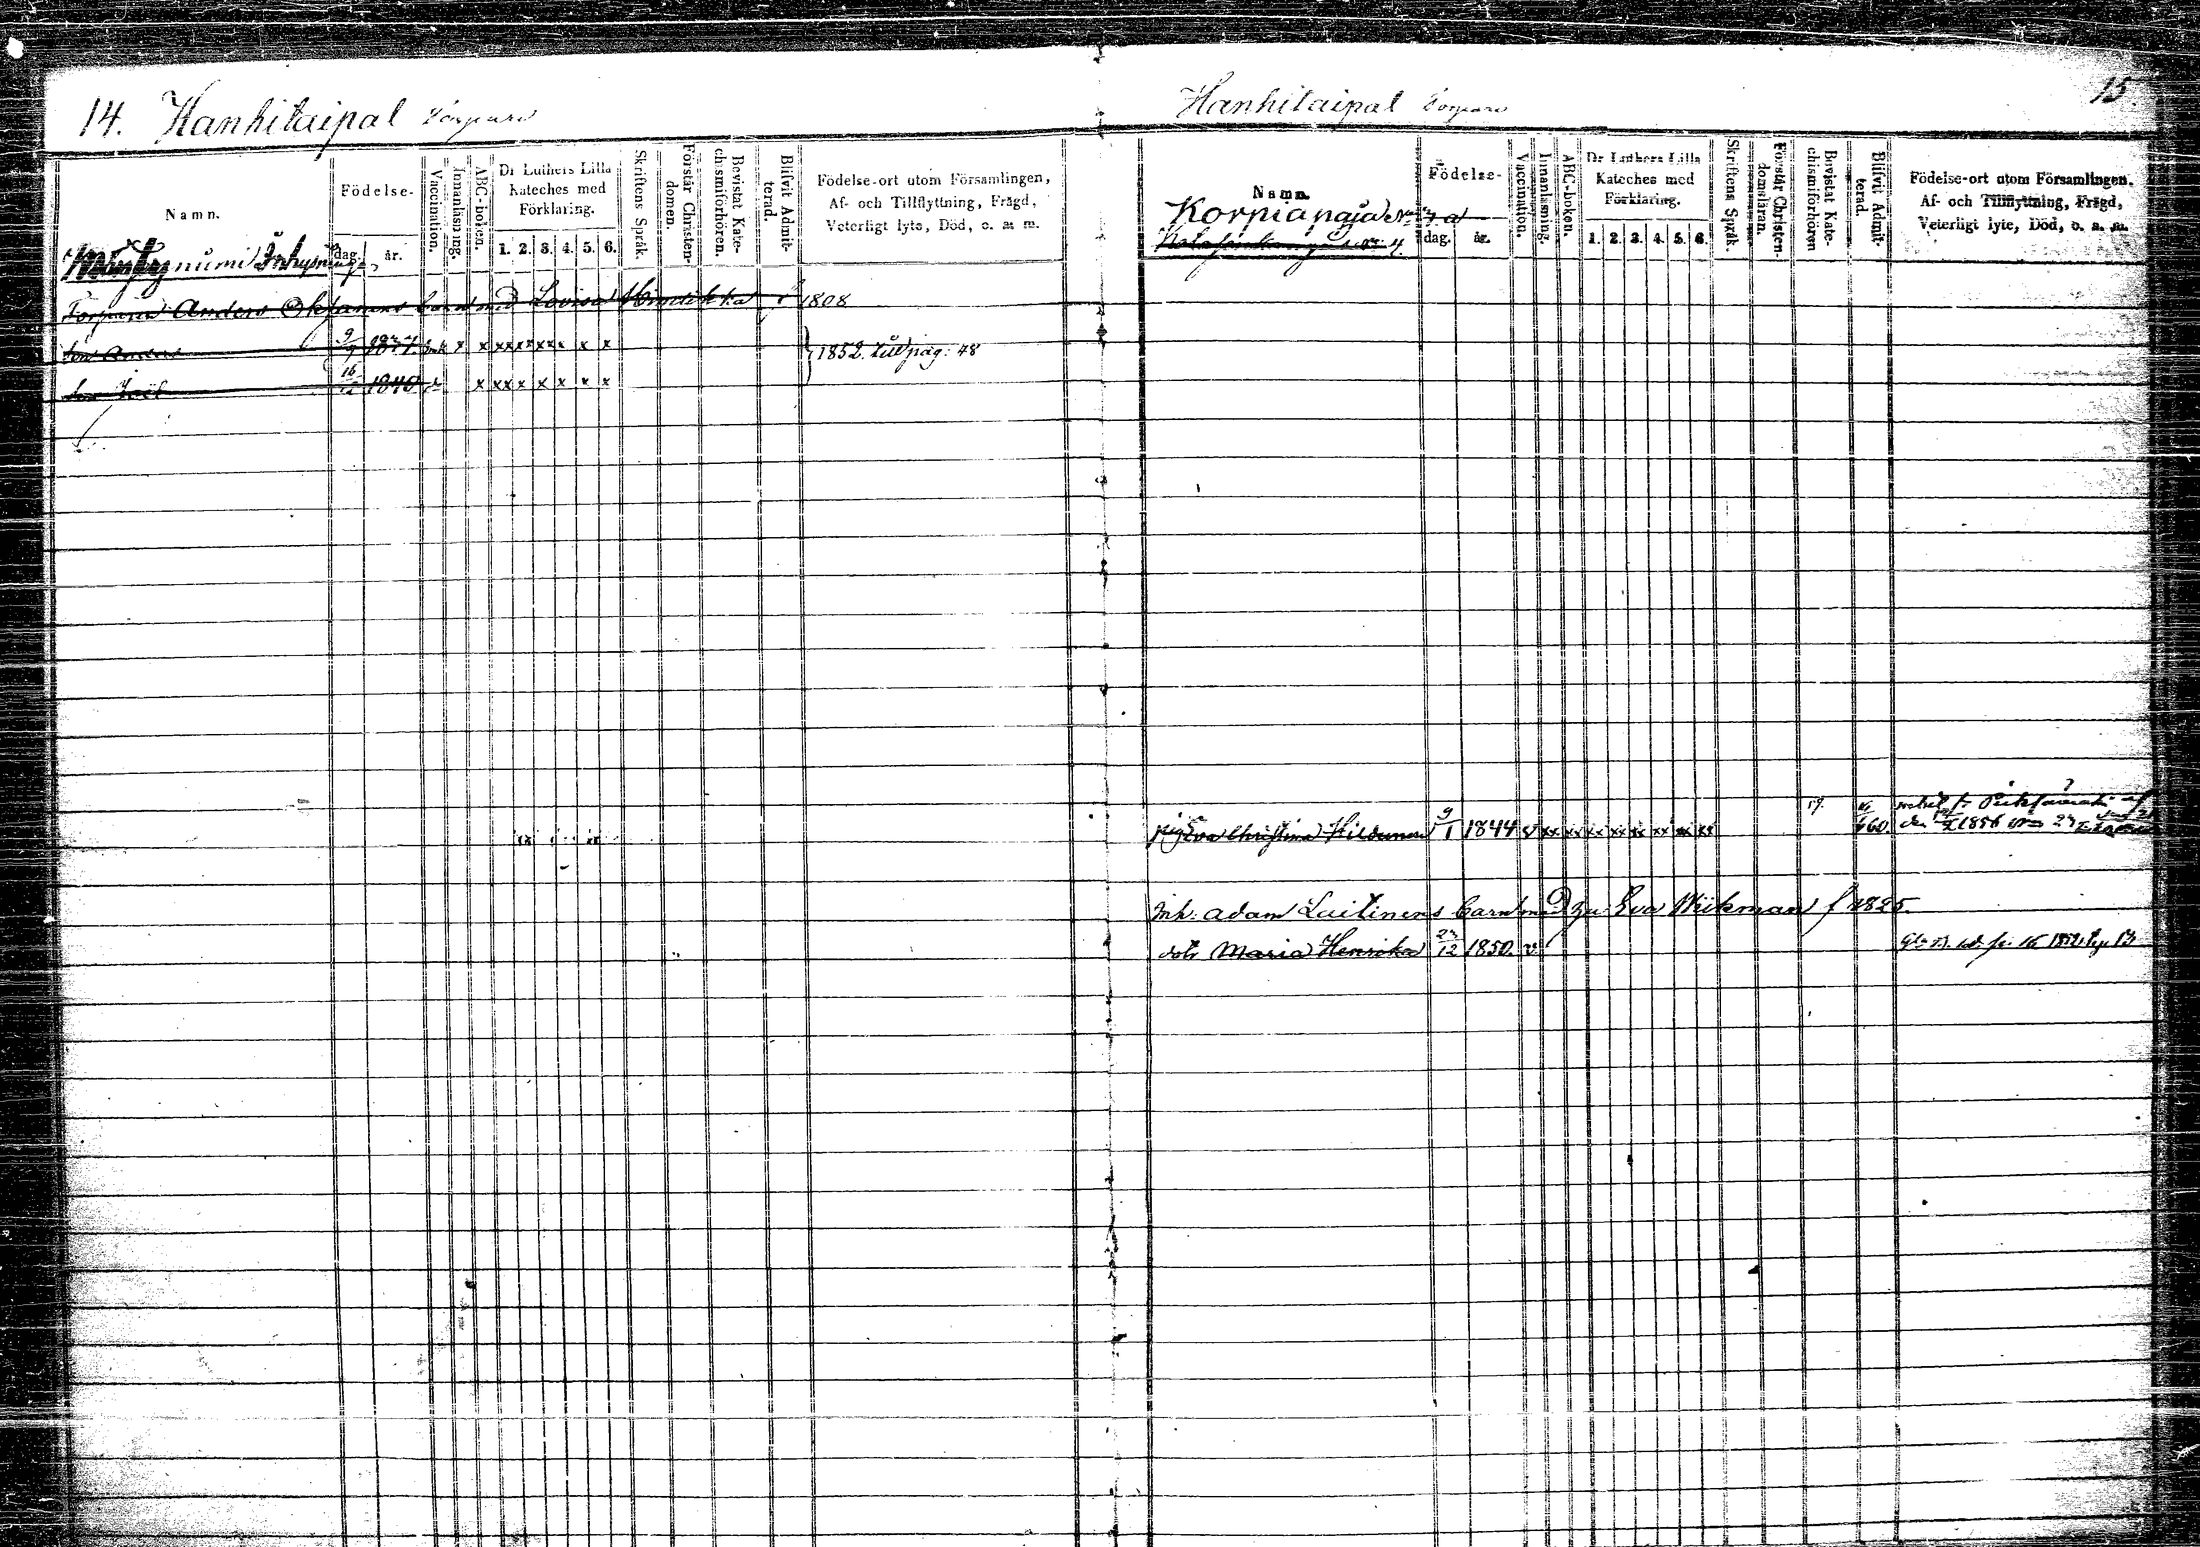 14. Hanhitaipal Torpare
Namn.
Födelse-
dag. år.
Vaccination.
Innanläsning.
ABC-boken.
Dr Luthers Lilla
Kateches med
Förklaring.
1. 2. 3. 4. 5. 6.
Skriftens Språk.
Förstår Christen-
domen.
Bevistat Kate-
chismiförhören.
Blifvit Admit-
terad.
Födelse-ort utom Församlingen,
Af- och Tillflyttning, Frägd,
Veterligt lyte, Död, o. a. m.
numi Inhysinge
Torparen Anders barn med Lovisa Hindrikka f 1808
son Anders 9/9 x x x x x x x x x x
1852. till pag: 48
son Joel 16 1840 x x x x x x x x
Hanhitaipal Torpare
15.
Namn.
Korpiapaja No 7 a
Födelse-
dag. år.
Vaccination.
Innanläsning.
ABC-boken.
Dr Luthers Lilla
Kateches med
Förklaring.
1. 2. 3. 4. 5. 6.
Skriftens Språk.
Förstår Christen-
domsläran.
Bevistat Kate-
chismiförhören
Blifvit Admit-
terad.
Födelse-ort utom Församlingen.
Af- och Tillflyttning, Frägd,
Veterligt lyte, Död, o. a. m.
59.
pig Eva Christina Hildunen 9/1 1844 v xx xx xx xx xx xx xx xx 60. den 1856
Inh: Adam Laitinens barn med hu Eva Wiikman f 1825.
dotr Maria Henrika 23/12 1850. v.